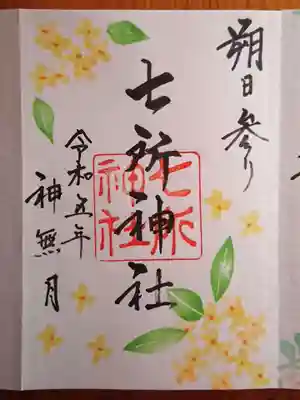 朔日参り
七所神社
七所
神社
令和五年
神無月